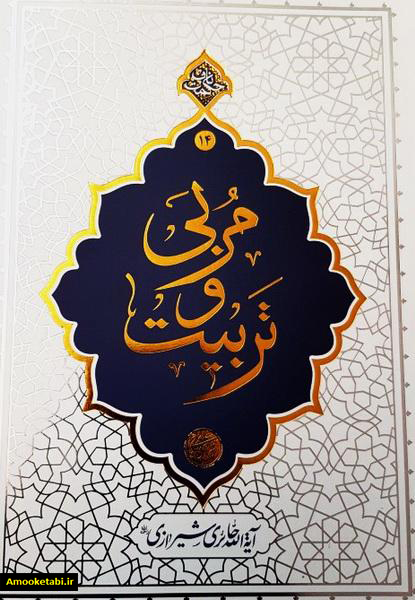 ۱۴
مربی
و
تربیت
آیة الله حائری شیرازی
Amooketabi.ir